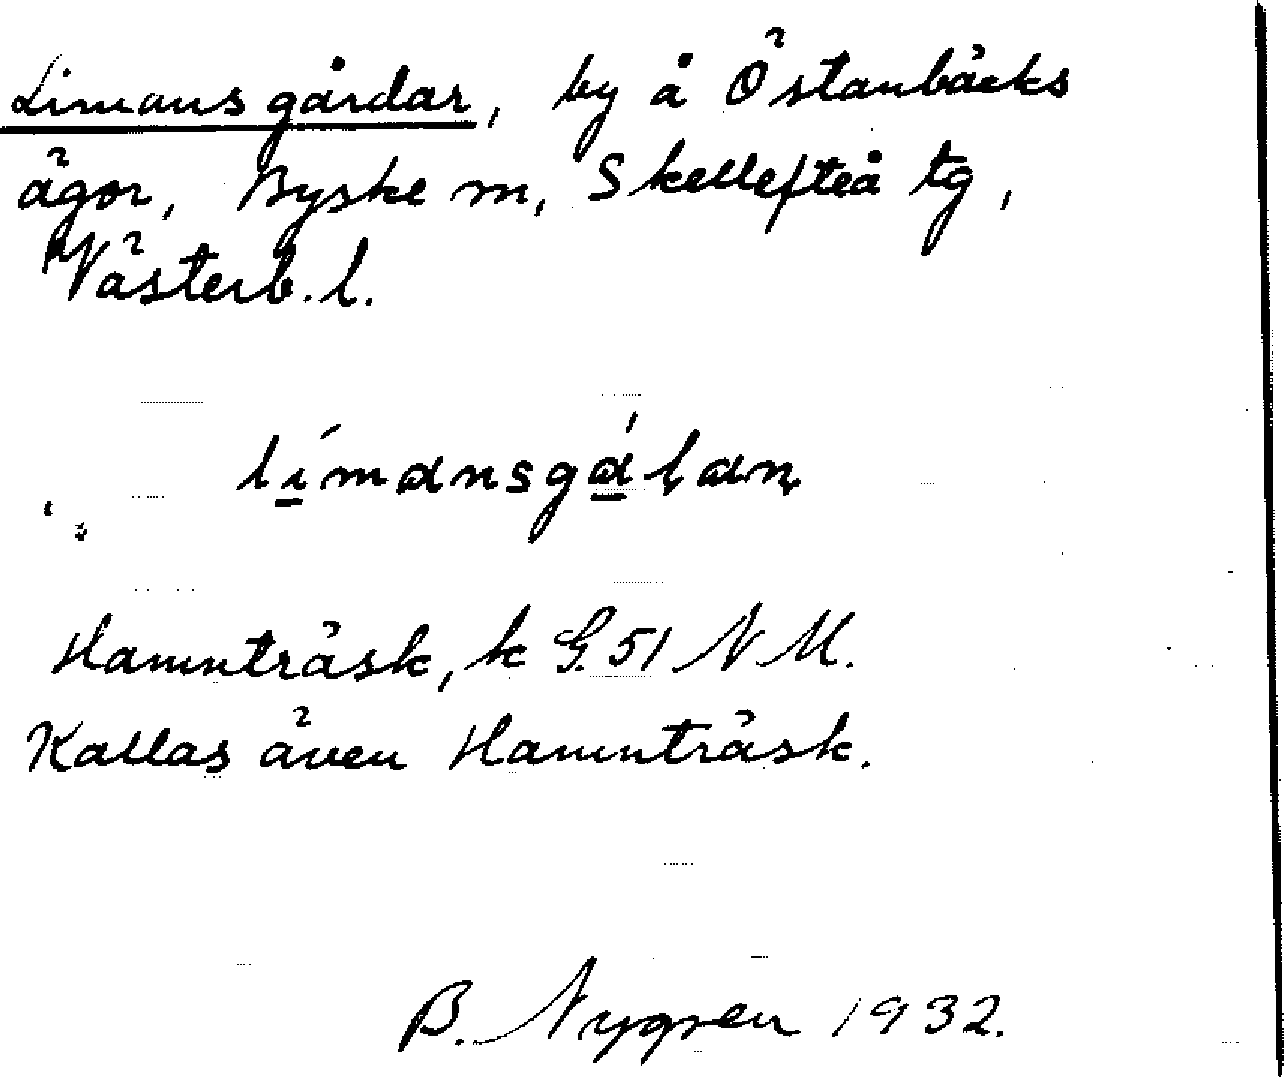 Limansgårdar, by å Östanbäcks
ägor, Byske sn, Skellefteå tg,
Västerb. l.
límansgá̱ḷaṇ
Hamnträsk, k G. 51 N M.
Kallas även Hamnträsk.
B. Nygren 1932.